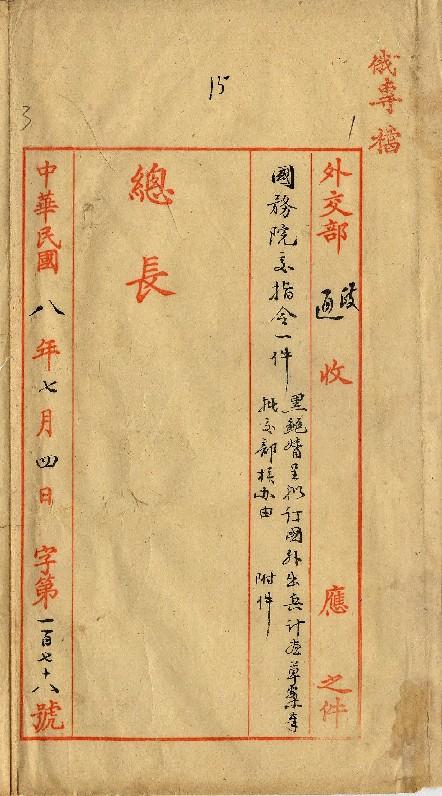 俄專檔
15
1
3
外交部 收 應 之件
國務院交指令一件
黑鮑督呈擬訂國外出兵計畫草案奉
批交部核办由 附件
總長
中華民國八年七月四日 字第一百七十八號